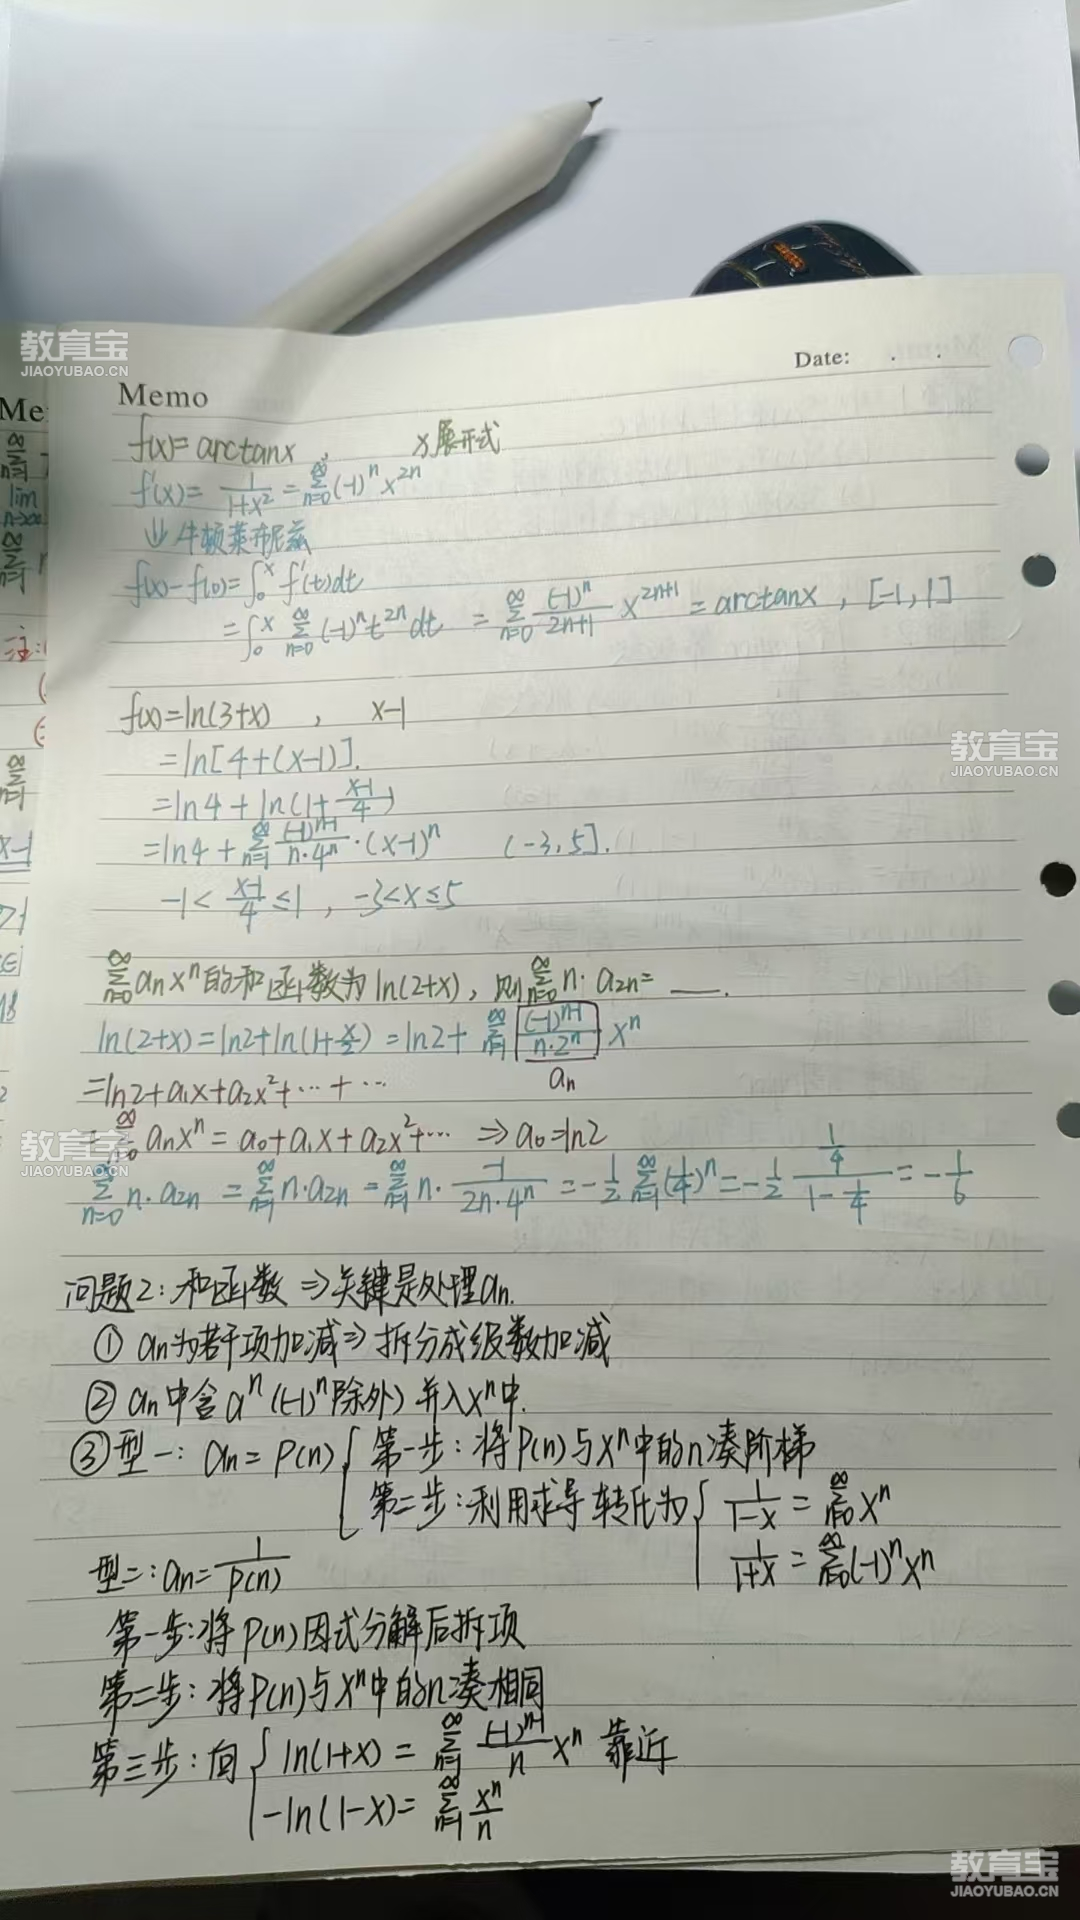 教育宝
JIAOYUBAO.CN
Date: . .
Memo
f(x)=arctanx x展开式
f'(x)= 1/(1+x²) = ∑_{n=0}^{∞}(-1)^n x^{2n}
⇓牛顿莱布尼兹
f(x)-f(0)=∫_0^x f'(t)dt
=∫_0^x ∑_{n=0}^{∞}(-1)^n t^{2n}dt = ∑_{n=0}^{∞} (-1)^n/(2n+1) x^{2n+1} = arctanx , [-1,1]
f(x)=ln(3+x) , x-1
=ln[4+(x-1)].
=ln4+ln(1+(x-1)/4)
=ln4+∑_{n=1}^{∞} (-1)^{n-1}/(n·4^n)·(x-1)^n (-3,5].
-1< (x-1)/4 ≤1 , -3<x≤5
教育宝
JIAOYUBAO.CN
∑_{n=0}^{∞} a_n x^n的和函数为ln(2+x), 则∑_{n=0}^{∞} n·a_{2n}= __.
ln(2+x)=ln2+ln(1+x/2)=ln2+∑_{n=1}^{∞} (-1)^{n-1}/(n·2^n) x^n
a_n
=ln2+a_1x+a_2x²+…+…
∑_{n=0}^{∞} a_n x^n = a_0+a_1x+a_2x²+… ⇒a_0=ln2
教育宝
JIAOYUBAO.CN
∑_{n=0}^{∞} n·a_{2n} = ∑_{n=1}^{∞} n·a_{2n} = ∑_{n=1}^{∞} n· -1/(2n·4^n) = -1/2 ∑_{n=1}^{∞}(1/4)^n = -1/2 (1/4)/(1-1/4) = -1/6
问题2:和函数⇒关键是处理a_n.
① a_n为若干项加减⇒拆分成级数加减
② a_n中含a^n((-1)^n除外)并入x^n中.
③型一: a_n=P(n){第一步:将P(n)与x^n中的n凑阶梯
第二步:利用求导转化为{1/(1-x)=∑_{n=0}^{∞}x^n
1/(1+x)=∑_{n=0}^{∞}(-1)^n x^n
型二:a_n=1/P(n)
第一步:将P(n)因式分解后拆项
第二步:将P(n)与x^n中的n凑相同
第三步:向{ln(1+x)=∑_{n=1}^{∞} (-1)^{n-1}/n x^n 靠近
-ln(1-x)=∑_{n=1}^{∞} x^n/n
教育宝
JIAOYUBAO.CN